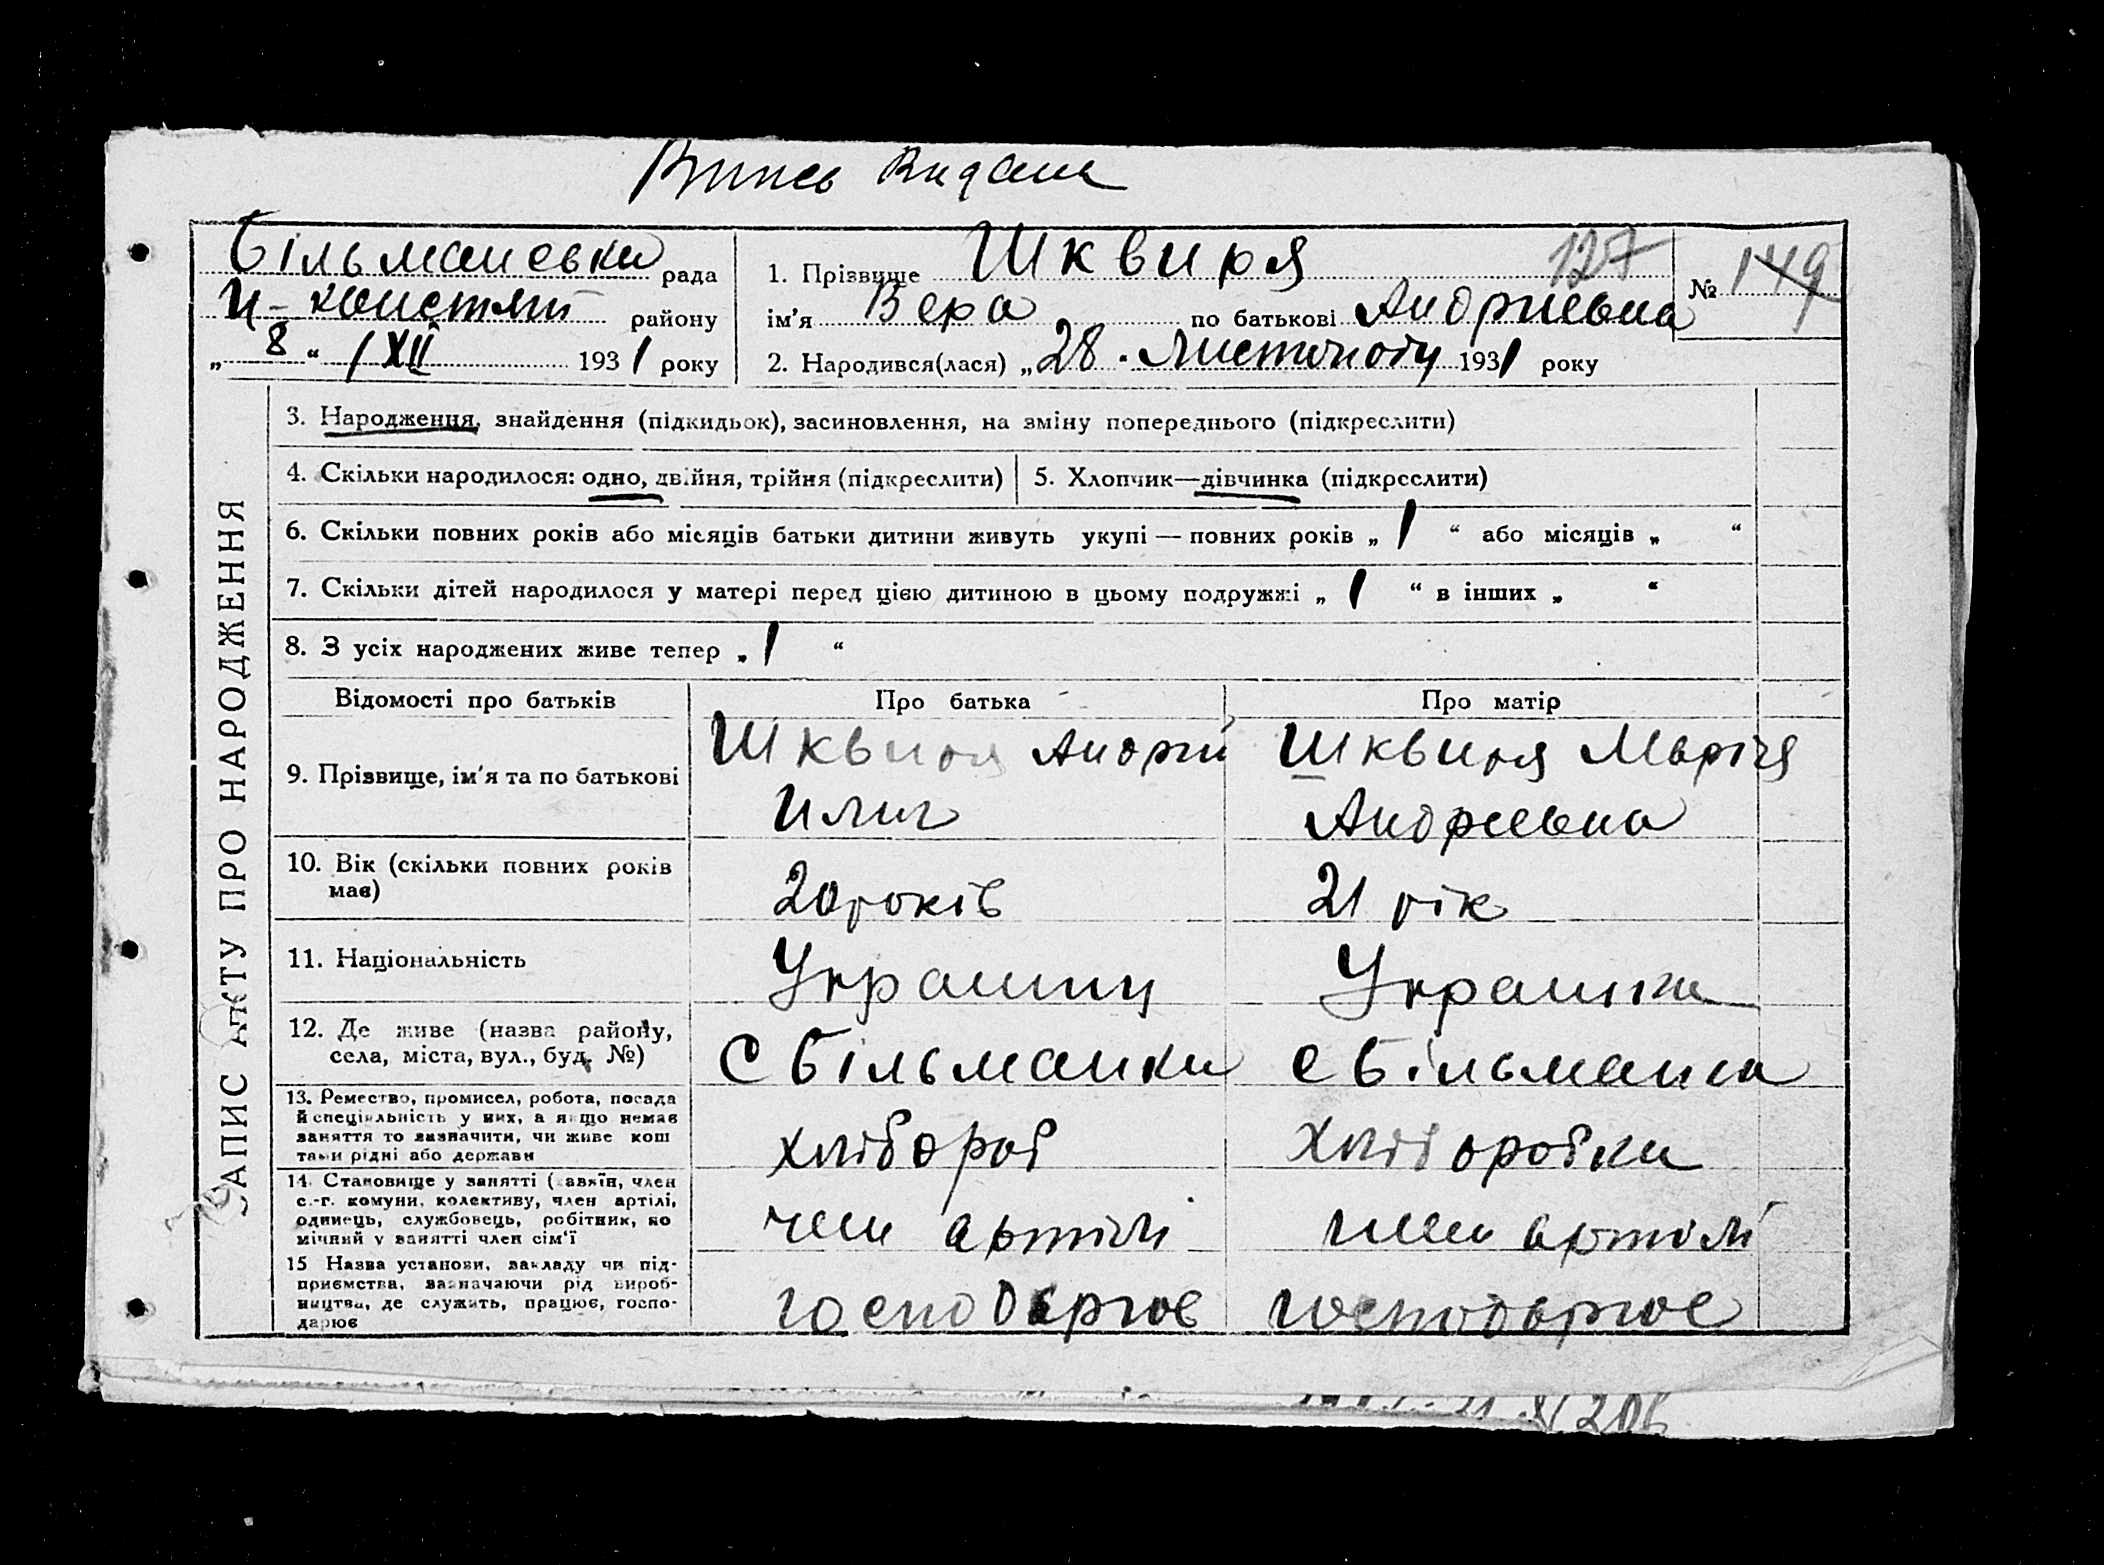 Випись видана
Більманська рада
Ц-Констян району
„ 8 “ /XII 1931 року
1. Прізвище Шквиря 127
№ 149
ім'я Вера по батькові Андриевна
2. Народився(лася) „28. Листоподу 1931 року
ЗАПИС АКТУ ПРО НАРОДЖЕННЯ
3. Народження, знайдення (підкидьок), засиновлення, на зміну попереднього (підкреслити)
4. Скільки народилося: одно, двійня, трійня (підкреслити)
5. Хлопчик—дівчинка (підкреслити)
6. Скільки повних років або місяців батьки дитини живуть укупі — повних років „ 1 “ або місяців „ “
7. Скільки дітей народилося у матері перед цією дитиною в цьому подружжі „ 1 “ в інших „ “
8. З усіх народжених живе тепер „ 1 “
Відомості про батьків Про батька Про матір
9. Прізвище, ім'я та по батькові
Шквиря Андрий
Илич
Шквиря Марія
Андреевна
10. Вік (скільки повних років
має)
20 років
21 рік
11. Національність
Украинц
Украинка
12. Де живе (назва району,
села, міста, вул., буд. №)
С Більманки
с Більманка
13. Ремество, промисел, робота, посада
й спеціяльність у них, а якщо немає
заняття то зазначити, чи живе кош
тами рідні або держави
хлібороб
хліборобка
14. Становище у занятті (хазяїн, член
с.-г. комуни, колективу, член артілі,
одинець, службовець, робітник, по
мічний у занятті член сім'ї
член артілі
член артілі
15 Назва установи, закладу чи під-
приємства, зазначаючи рід вироб-
ництва, де служить, працює, госпо-
дарює
господарює
господарює